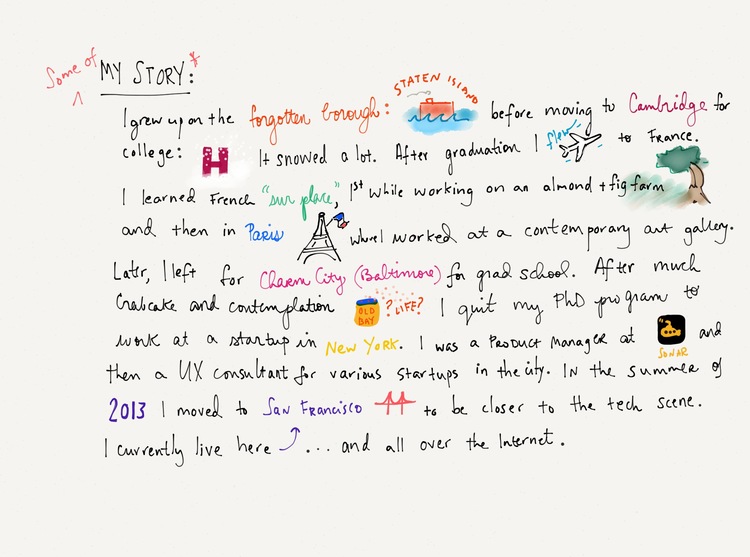 Some of MY STORY:*
STATEN ISLAND
I grew up on the forgotten borough: before moving to Cambridge for
college: H It snowed a lot. After graduation I flew to France.
I learned French "sur place", 1st while working on an almond + fig farm
and then in Paris where I worked at a contemporary art gallery.
Later, I left for Charm City (Baltimore) for grad school. After much
Crabcake and contemplation OLD BAY ? LIFE? I quit my PhD program to
work at a startup in NEW YORK. I was a Product Manager at SONAR and
then a UX consultant for various startups in the city. In the summer of
2013 I moved to San Francisco to be closer to the tech scene.
I currently live here ... and all over the Internet.